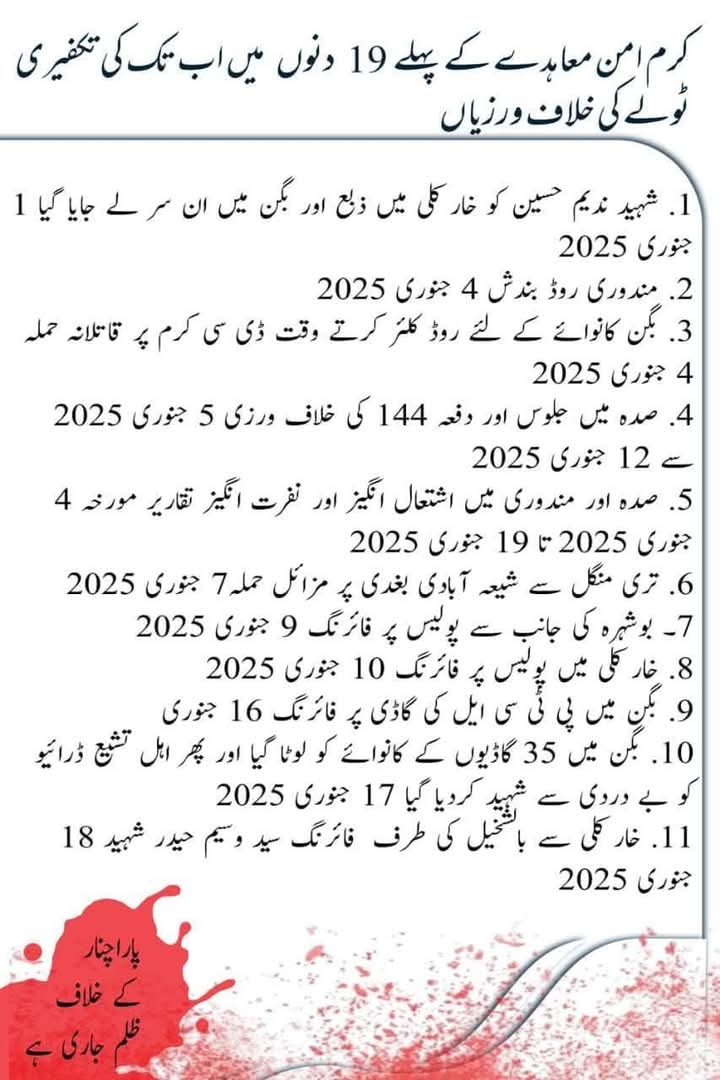 کرم امن معاہدے کے پہلے 19 دنوں میں اب تک کی تکفیری
ٹولے کی خلاف ورزیاں
1. شہید ندیم حسین کو خار کلی میں ذبع اور بگن میں ان سر لے جایا گیا 1
جنوری 2025
2. مندوری روڈ بندش 4 جنوری 2025
3. بگن کانوائے کے لئے روڈ کلئر کرتے وقت ڈی سی کرم پر قاتلانہ حملہ
4 جنوری 2025
4. صدہ میں جلوس اور دفعہ 144 کی خلاف ورزی 5 جنوری 2025
سے 12 جنوری 2025
5. صدہ اور مندوری میں اشتعال انگیز اور نفرت انگیز تقاریر مورخہ 4
جنوری 2025 تا 19 جنوری 2025
6. تری منگل سے شیعہ آبادی بغدی پر مزائل حملہ 7 جنوری 2025
7۔ بوشہرہ کی جانب سے پولیس پر فائرنگ 9 جنوری 2025
8. خار کلی میں پولیس پر فائرنگ 10 جنوری 2025
9. بگن میں پی ٹی سی ایل کی گاڈی پر فائرنگ 16 جنوری
10. بگن میں 35 گاڈیوں کے کانوائے کو لوٹا گیا اور پھر اہل تشیع ڈرائیو
کو بے دردی سے شہید کردیا گیا 17 جنوری 2025
11. خار کلی سے بالشخیل کی طرف فائرنگ سید وسیم حیدر شہید 18
جنوری 2025
پاراچنار
کے خلاف
ظلم جاری ہے